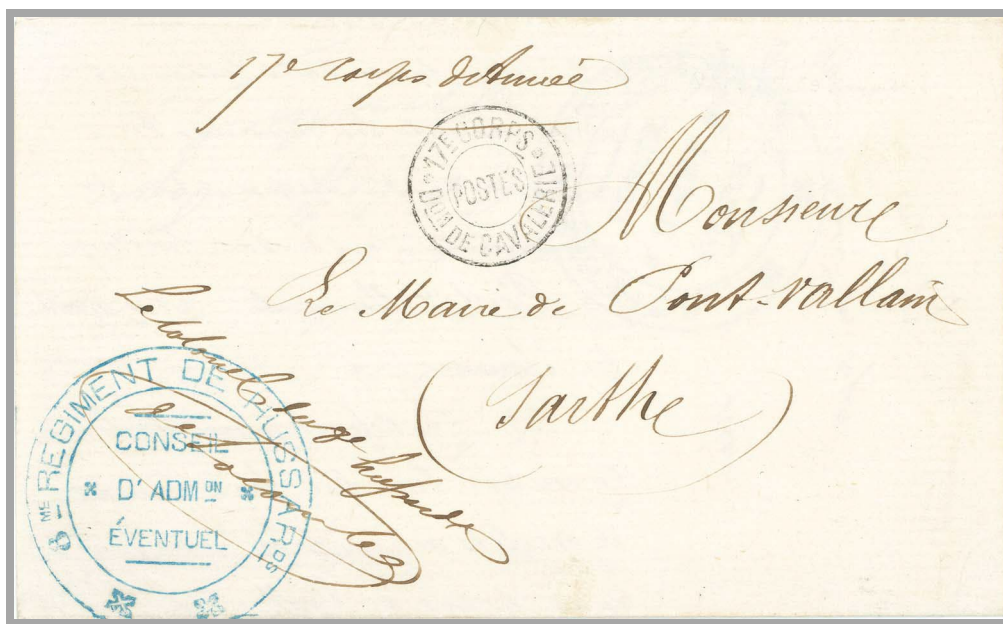 17e corps d'Armée
17E CORPS
DON DE CAVALERIE
POSTES
Monsieur
Le Maire de Pont-Vallain
(Sarthe)
Le Colonel
8ME REGIMENT DE HUSSARDS
CONSEIL
D'ADMON
ÉVENTUEL